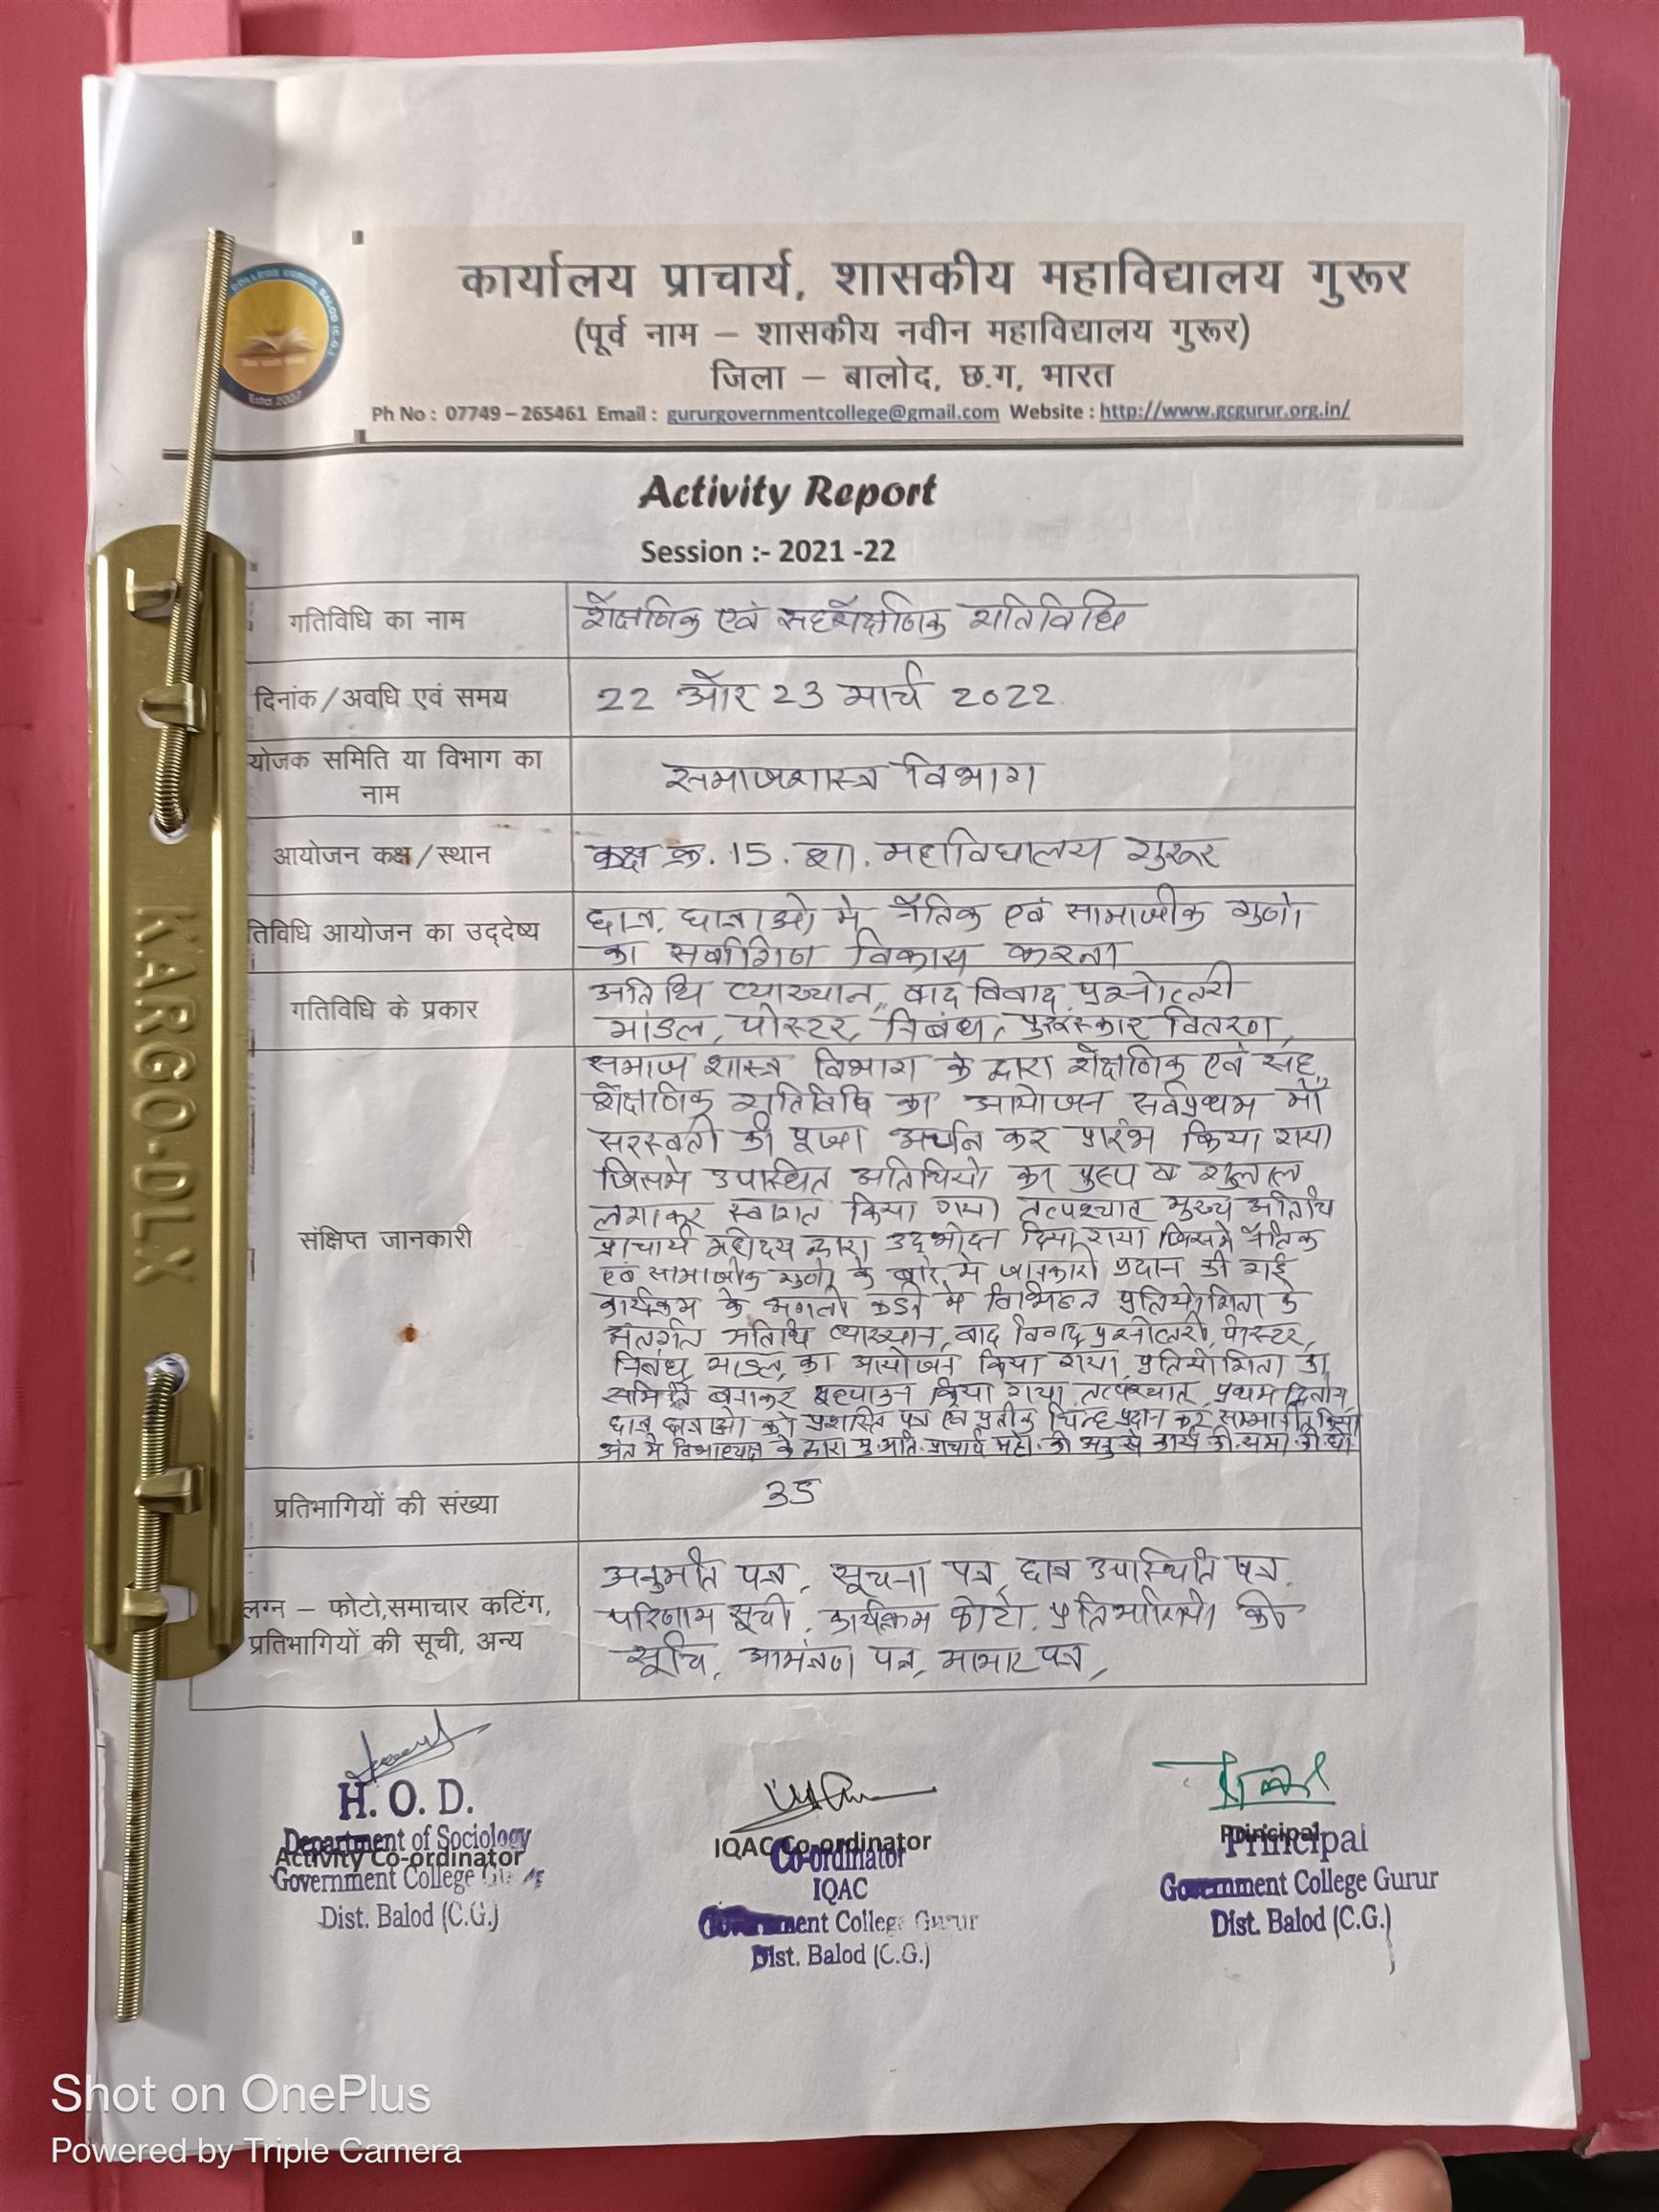 कार्यालय प्राचार्य, शासकीय महाविद्यालय गुरूर
(पूर्व नाम – शासकीय नवीन महाविद्यालय गुरूर)
जिला – बालोद, छ.ग, भारत
Ph No : 07749 – 265461 Email : gururgovernmentcollege@gmail.com Website : http://www.gcgurur.org.in/
Estd. 2007
Activity Report
Session :- 2021 -22
गतिविधि का नाम
शैक्षणिक एवं सहशैक्षणिक गतिविधि
दिनांक/अवधि एवं समय
22 और 23 मार्च 2022
योजक समिति या विभाग का
नाम
समाजशास्त्र विभाग
आयोजन कक्ष/स्थान
कक्ष क्र. 15. शा. महाविघालय गुरूर
तिविधि आयोजन का उद्देष्य
छात्र, छात्राओ मे नैतिक एवं सामाजीक गुणो
का सर्वागिण विकास करना
गतिविधि के प्रकार
अतिथि व्याख्यान, वाद विवाद, प्रश्नोत्तरी
माडल, पोस्टर, निबंध, पुरस्कार वितरण,
संक्षिप्त जानकारी
समाज शास्त्र विभाग के द्वारा शैक्षणिक एवं सह
शैक्षणिक गतिविधि का आयोजन सर्वप्रथम माँ
सरस्वती की पूजा अर्चन कर प्रारंभ किया गया
जिसमे उपास्थित अतिथियो का पुष्प व गुलाल
लगाकर स्वागत किया गया तत्पश्चात मुख्य अतिथि
प्राचार्य महोदय द्वारा दिया गया जिसमे नैतिक
एवं सामाजीक गुणो के बारे मे जानकारी प्रदान की गई
कार्यक्रम के अगली कडी मे विभिन्न प्रतियोगिता के
अंतर्गत अतिथि व्याख्यान, वाद विवाद प्रश्नोत्तरी, पोस्टर,
निबंध, माडल, का आयोजन किया गया, प्रतियोगिता का
समिति बनाकर किया गया तत्पश्चात् प्रथम द्वितीय
छात्र छात्राओ को प्रशस्ति पत्र एवं प्रतीक चिन्ह प्रदान कर सम्मानीत किया
अंत मे के द्वारा मु.अति. प्राचार्य महो. की कार्य की की
प्रतिभागियों की संख्या
35
लग्न – फोटो,समाचार कटिंग,
प्रतिभागियों की सूची, अन्य
अनुमति पत्र, सूचना पत्र, छात्र उपास्थिति पत्र,
परिणाम सूची, कार्यक्रम फोटो, प्रतिभागियो की
सूचि, आमंत्रण पत्र, आभार पत्र,
H. O. D.
Department of Sociology
Activity Co-ordinator
Government College
Dist. Balod (C.G.)
IQAC Co-ordinator
Co-ordinator
IQAC
Government College Gurur
Dist. Balod (C.G.)
Principal
Principal
Government College Gurur
Dist. Balod (C.G.)
KARGO.DLX
Shot on OnePlus
Powered by Triple Camera